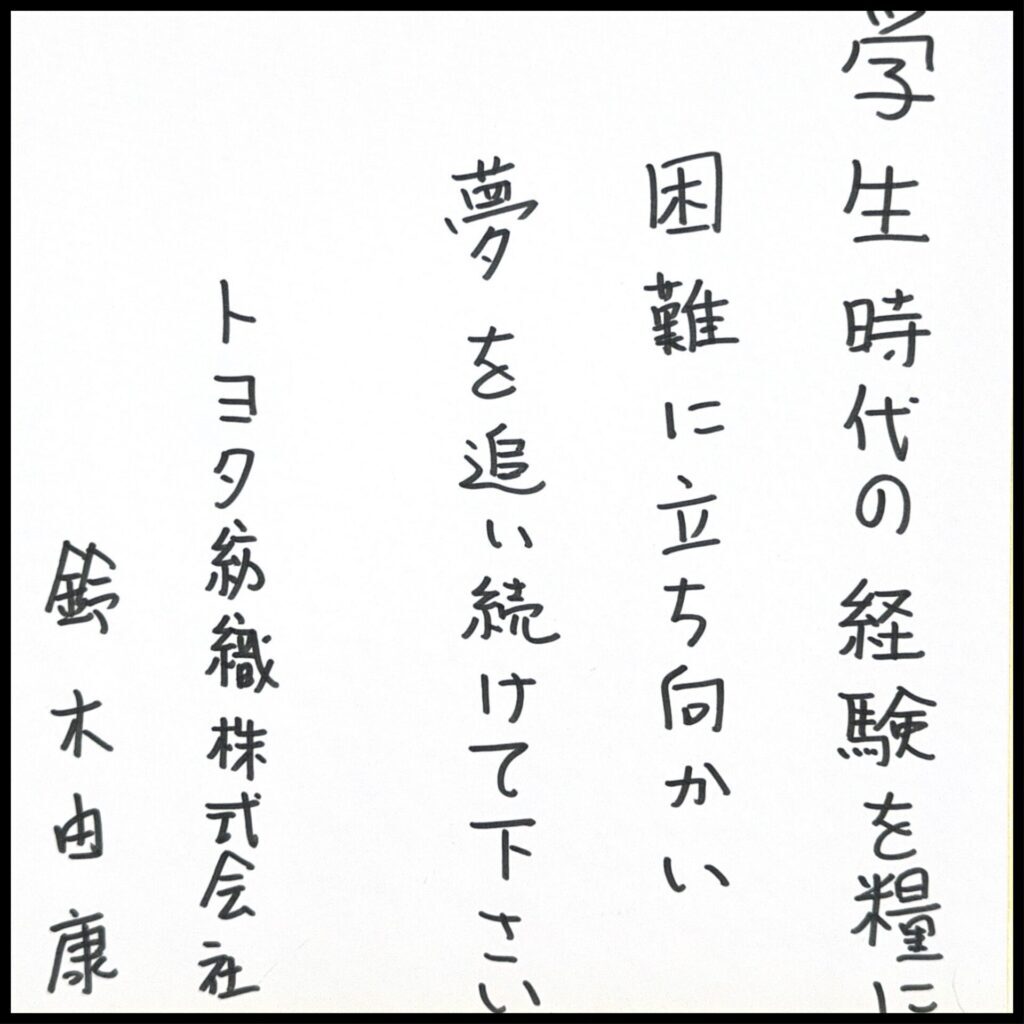 学生時代の経験を糧に
困難に立ち向かい
夢を追い続けて下さい
トヨタ紡織株式会社
鈴木由康